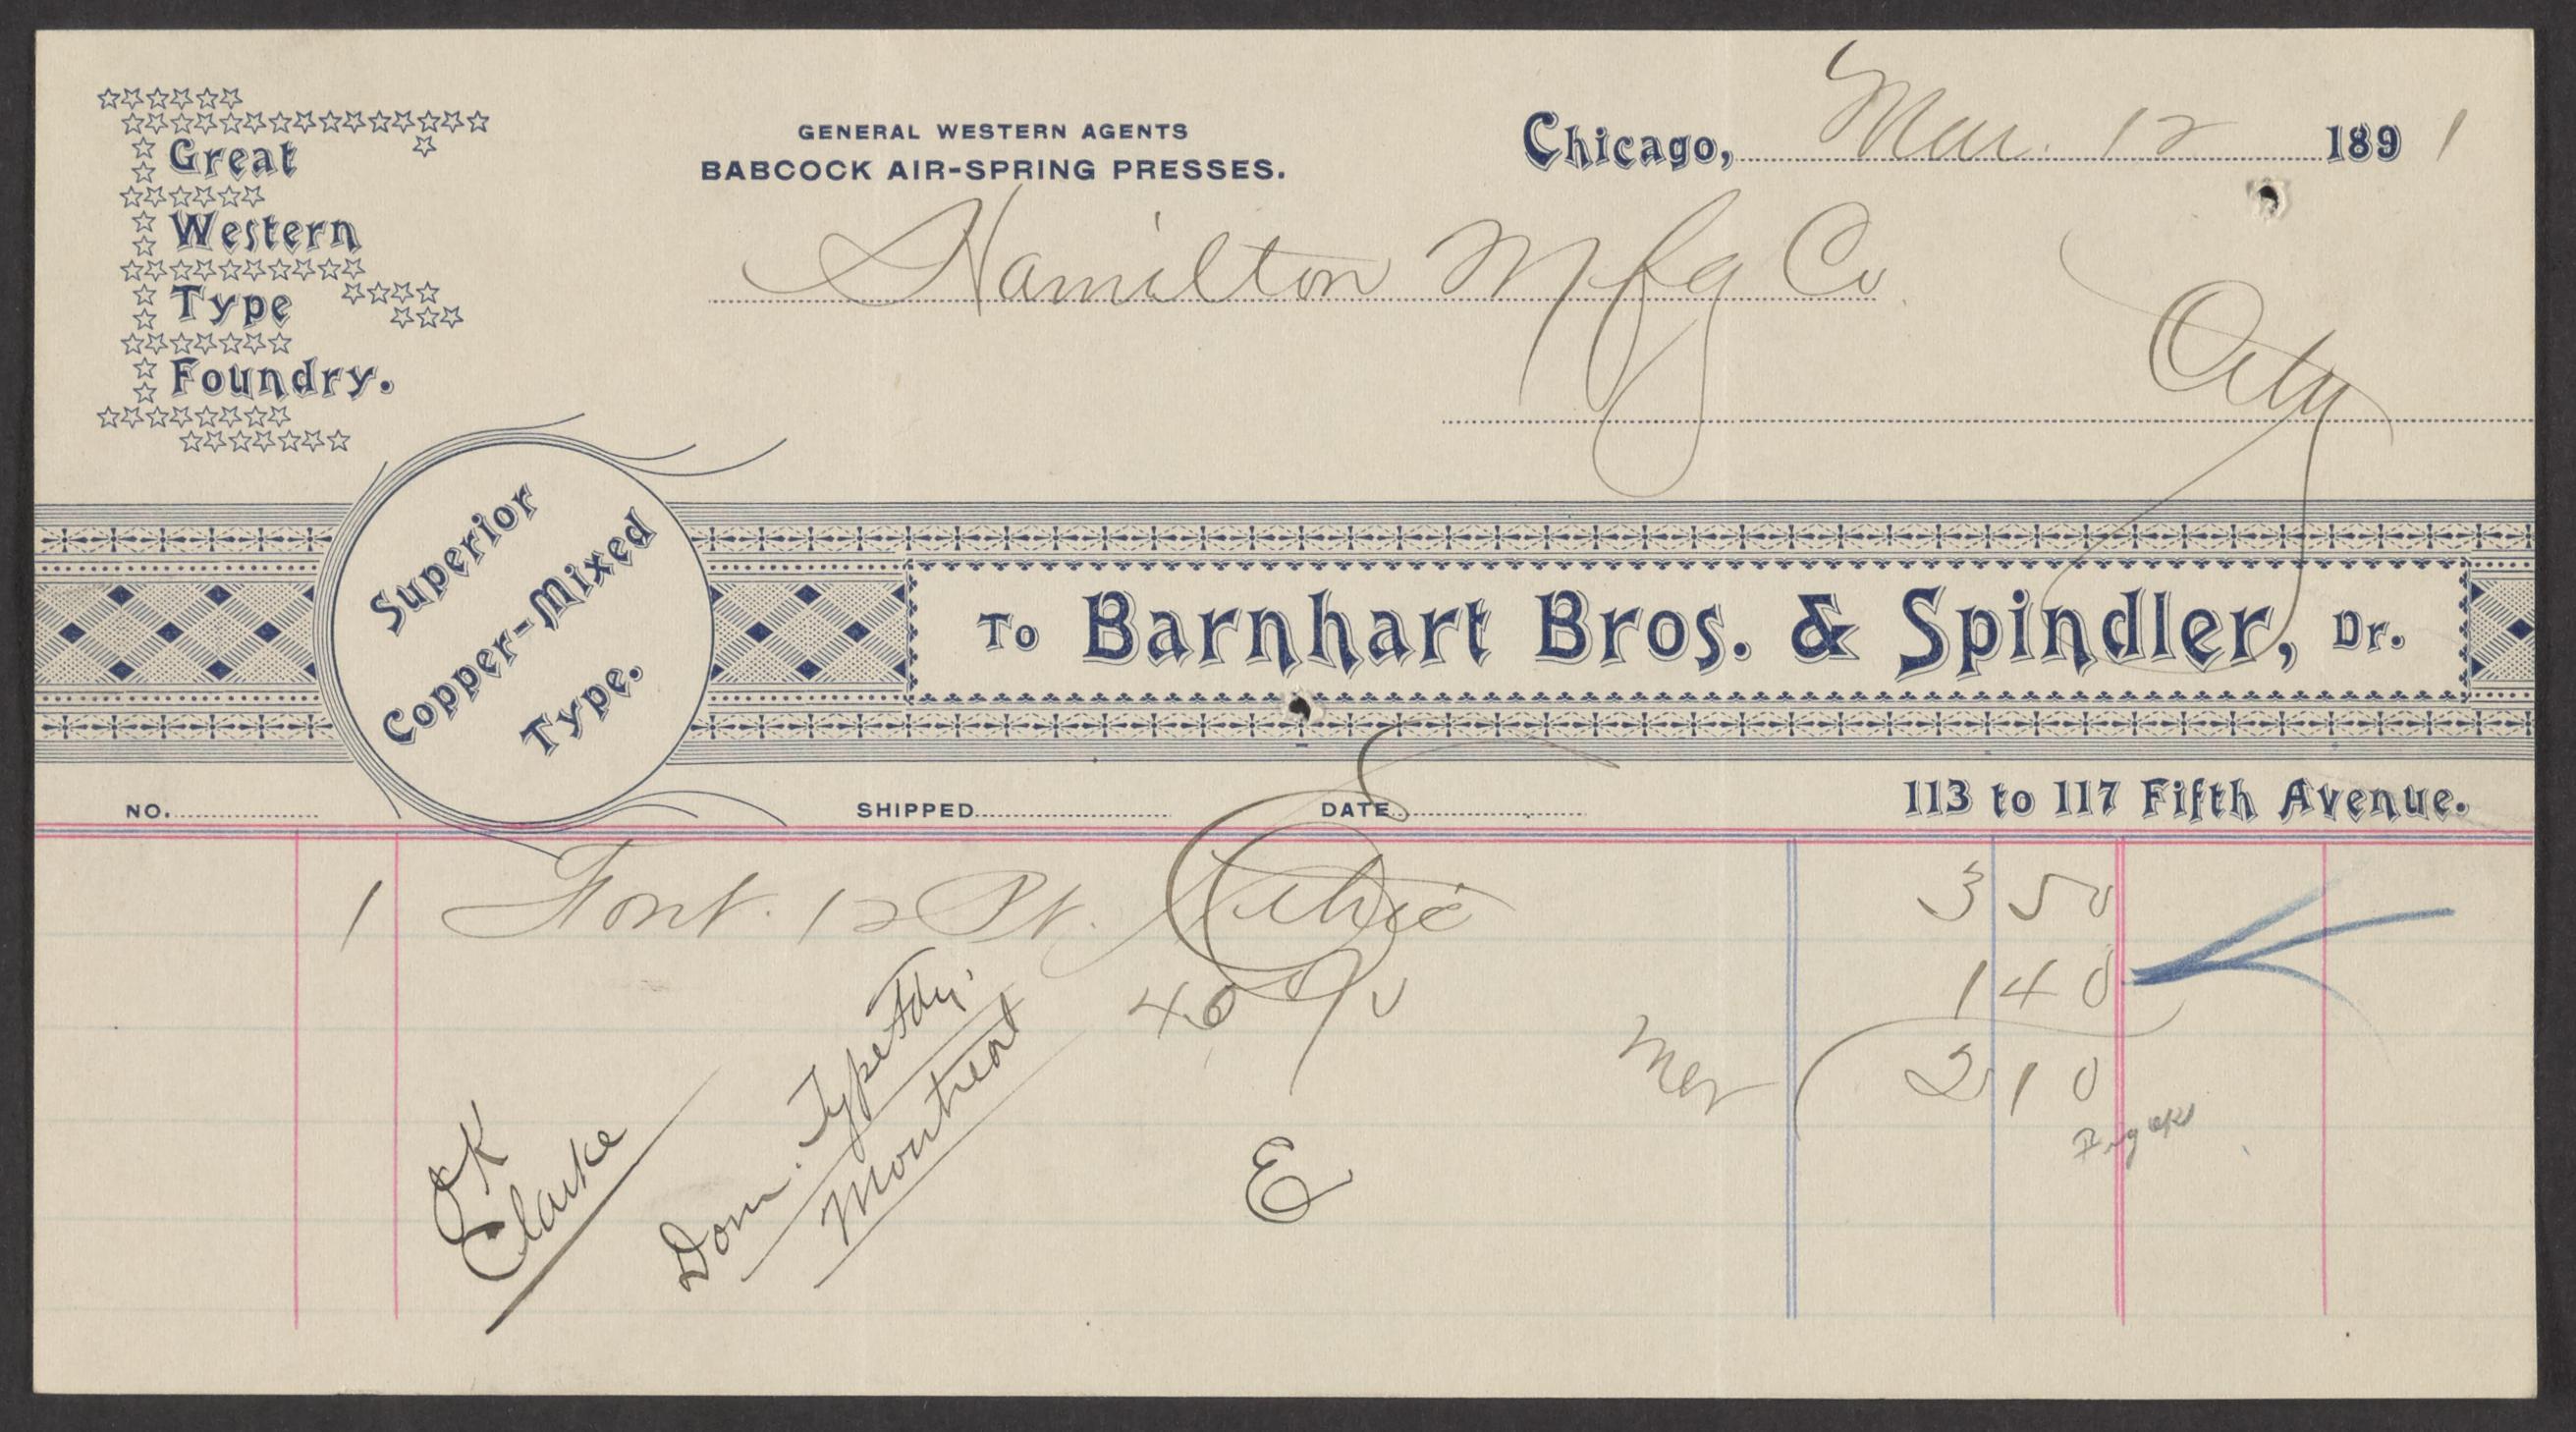 Great
Western
Type
Foundry.
GENERAL WESTERN AGENTS
BABCOCK AIR-SPRING PRESSES.
Chicago, Mar. 12 1891
Hamilton Mfg Co.
City
Superior
Copper-Mixed
Type.
To Barnhart Bros. & Spindler, Dr.
NO. SHIPPED DATE
113 to 117 Fifth Avenue.
1 Font. 12 Pt. 3 50
40 % 1 40
Mer 2 10
OK
Clarke
Dom. Type Fdy.
Montreal
E